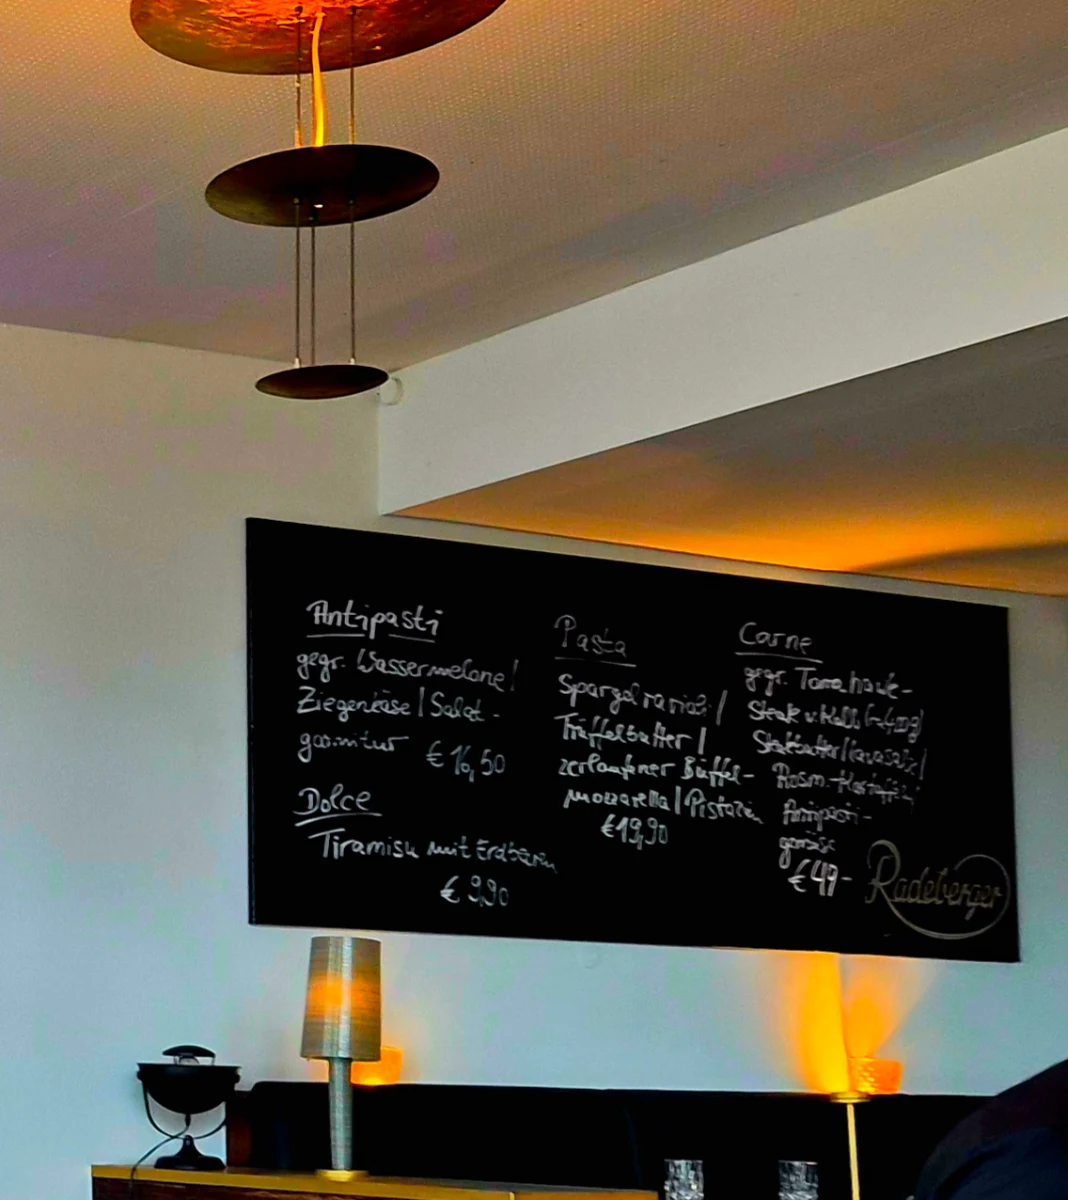 Antipasti
gegr. Wassermelone |
Ziegenkäse | Salat-
garnitur € 16,50
Dolce
Tiramisu mit Erdbeeren
€ 9,90
Pasta
Spargelravioli |
Trüffelbutter |
zerlaufener Büffel-
mozzarella | Pistazien
€ 19,90
Carne
gegr. Tomahawk-
Steak v. Kalb
Rosm.-Kartoffeln
Antipasti-
gemüse
€ 49-
Radeberger